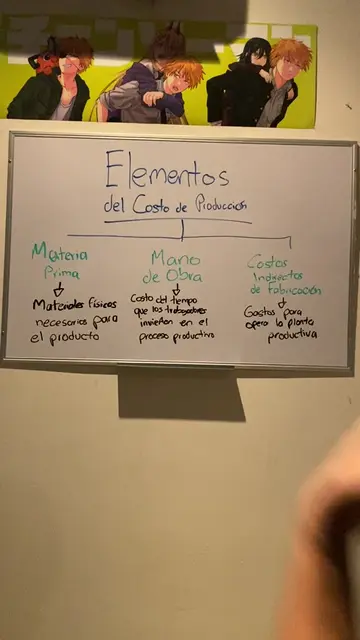 Elementos
del Costo de Producción
Materia
Prima
Materiales físicos
necesarios para
el producto
Mano
de Obra
Costo del tiempo
que los trabajadores
invierten en el
proceso productivo
Costos
Indirectos
de Fabricación
Gastos para
opera la planta
productiva